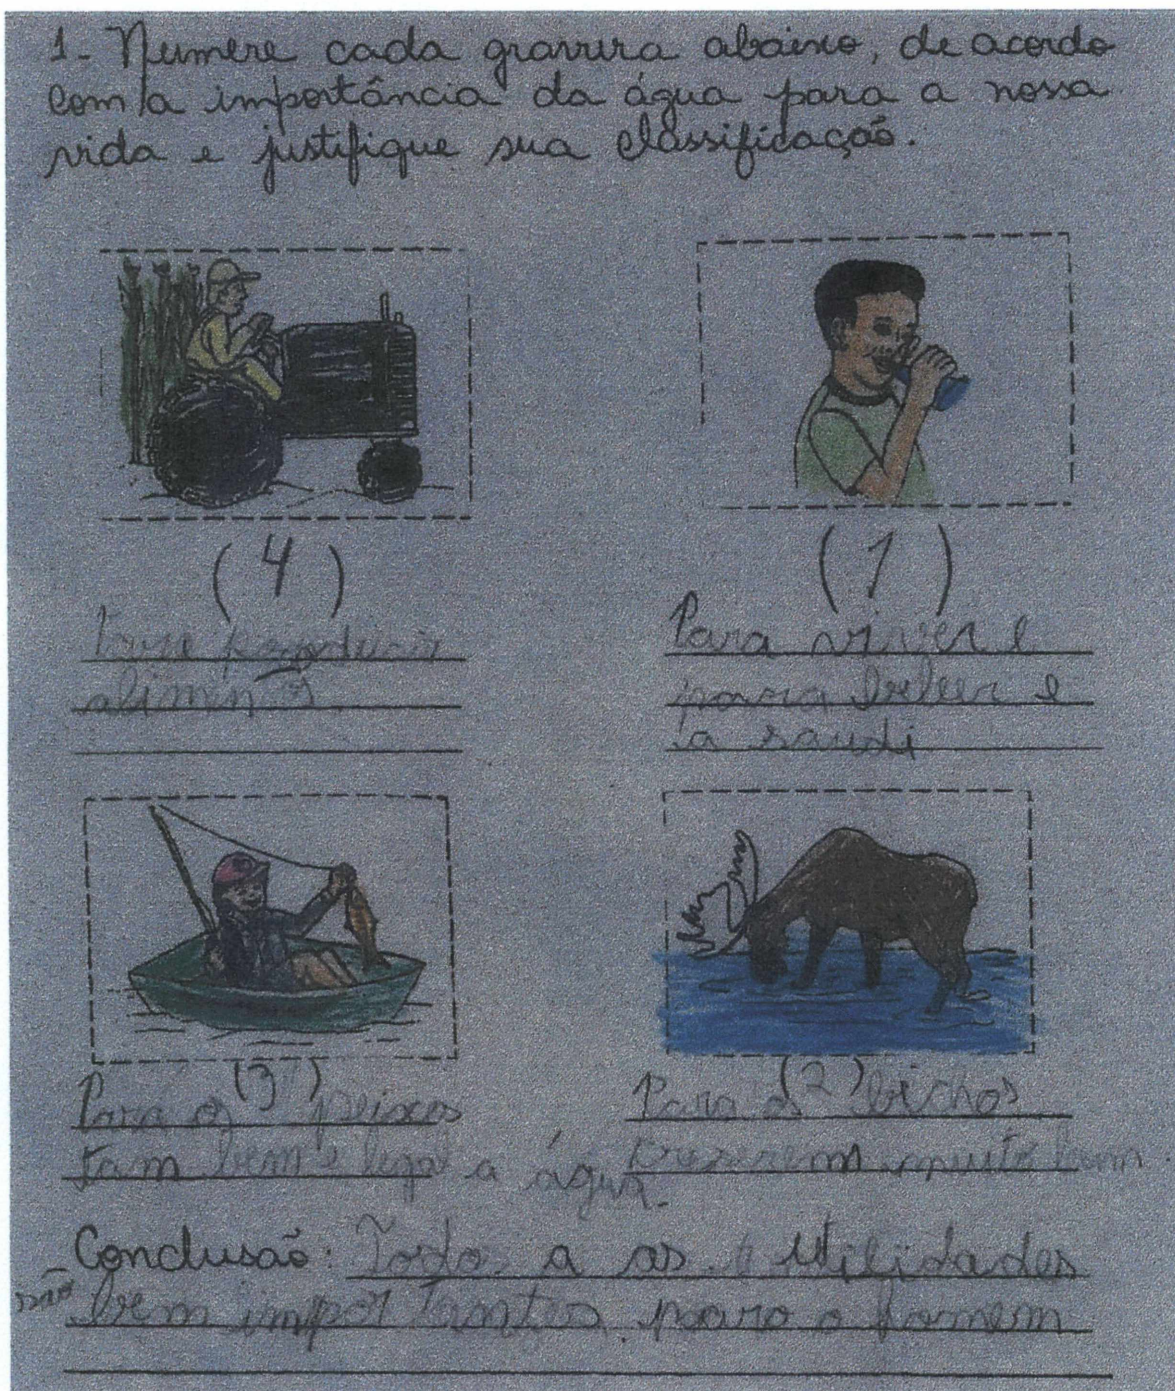 1- Numere cada gravura abaixo, de acordo
com a importância da água para a nossa
vida e justifique sua classificação.
(4)
(1)
alimento
Para viver e
para beber e
a saudi
(3)
(2)
Para os peixes
Para os bichos
tam bem e legal a água.
muito bem
Conclusão: Todo a as utilidades
são
bem impor tantes paro o homem